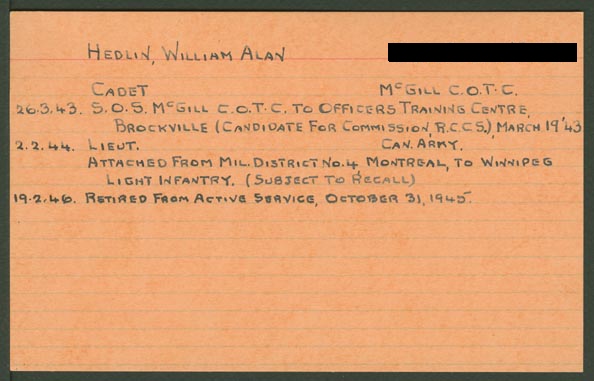 HEDLIN, WILLIAM ALAN
CADET McGILL C.O.T.C.
26.3.43. S.O.S. McGILL C.O.T.C. TO OFFICERS TRAINING CENTRE,
BROCKVILLE (CANDIDATE FOR COMMISSION, R.C.C.S.), MARCH 19'43
2.2.44. LIEUT. CAN. ARMY.
ATTACHED FROM MIL. DISTRICT NO. 4, MONTREAL, TO WINNIPEG
LIGHT INFANTRY. (SUBJECT TO RECALL)
19.2.46. RETIRED FROM ACTIVE SERVICE, OCTOBER 31, 1945.